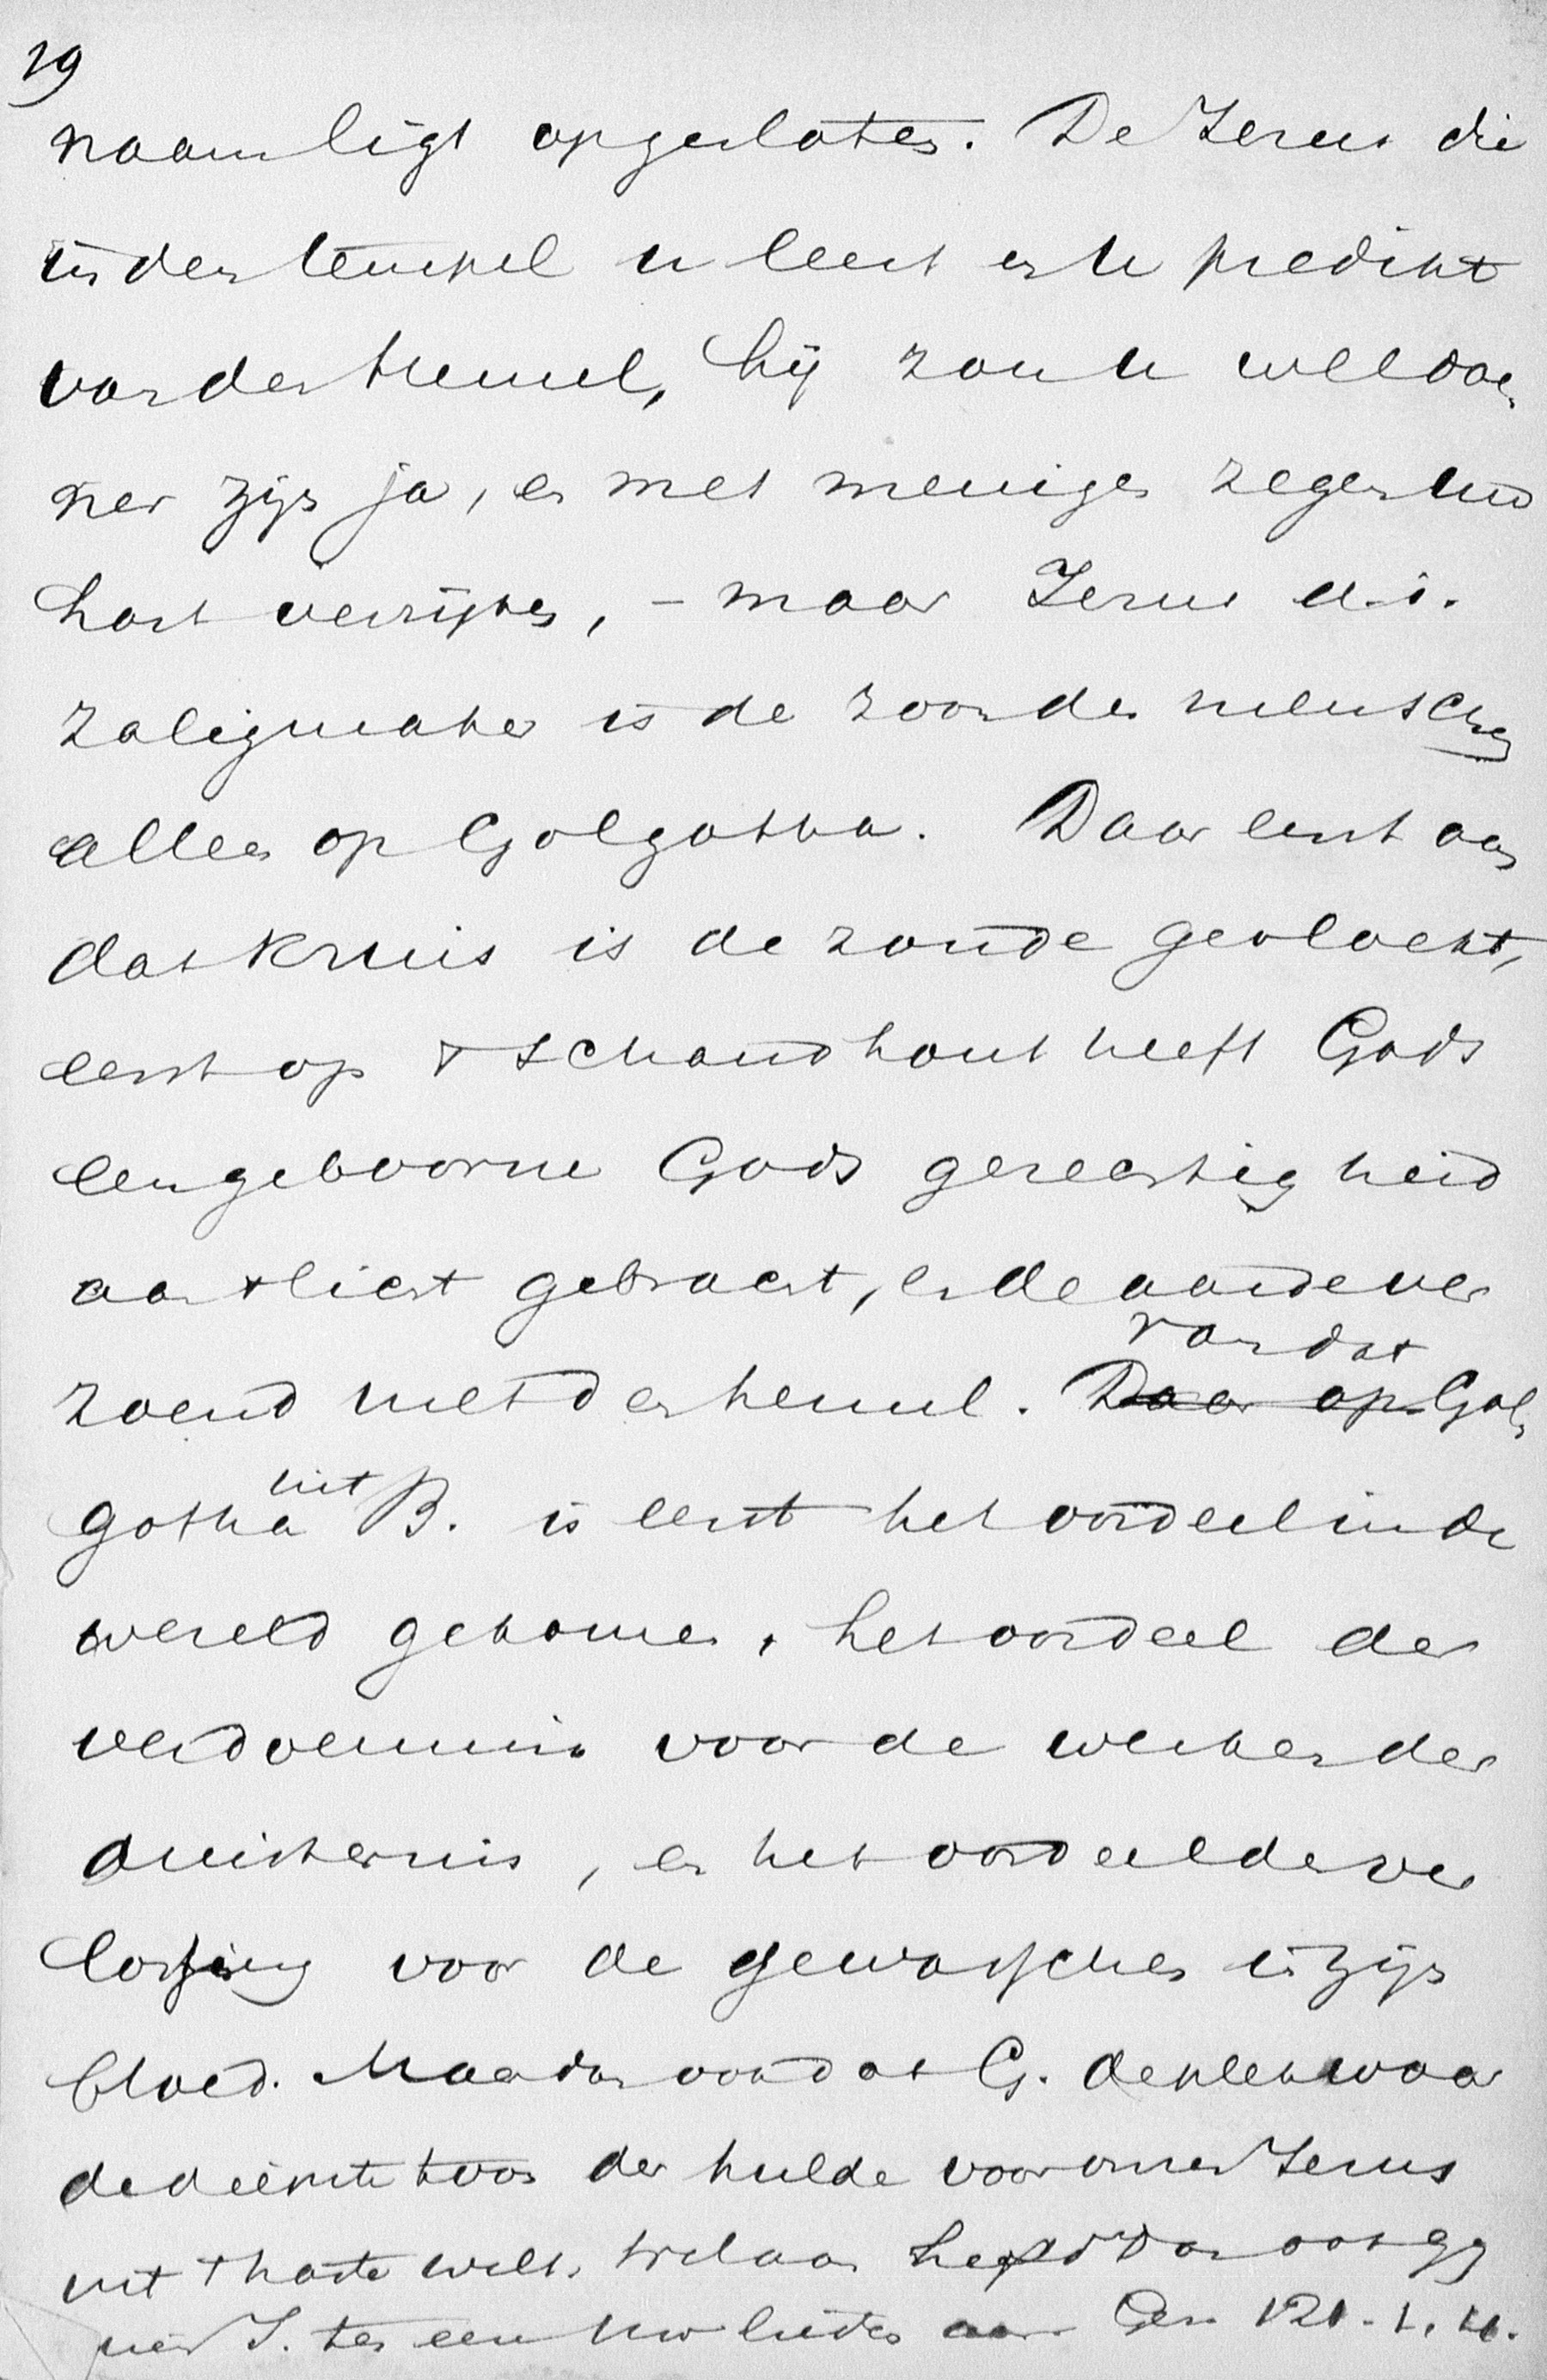 19
naam ligt opgesloten. De Jezus die
in den tempel u leert en u predikt
van den Hemel, hij zou u weldoe-
ner zijn ja, en met menigen zegen uw
hart verrijken, – maar Jezus d.i.
zaligmaker is de zoon des menschen
alleen op Golgotha. Daar eerst aan
dat Kruis is de zonde gevloekt,
eerst op 't schandhout heeft Gods
eengeboorne Gods gerechtigheid
aan 't licht gebracht, en de aarde ver
zoend met den hemel. Daar op Gol-
van dat
gotha uit B. is eerst het oordeel in de
wereld gekomen, het oordeel der
verdoemenis voor de werken der
duisternis, en het oordeel der ver
lossing voor de gewasschen in zijn
bloed. Maar dan ook dat G. de plek waar
de diepste toon der hulde voor onzen Jezus
uit 't harte welt. Welaan heft dan ook gij
mijn J. ter eer uw lied aan Gez. 121 - 1, 4.